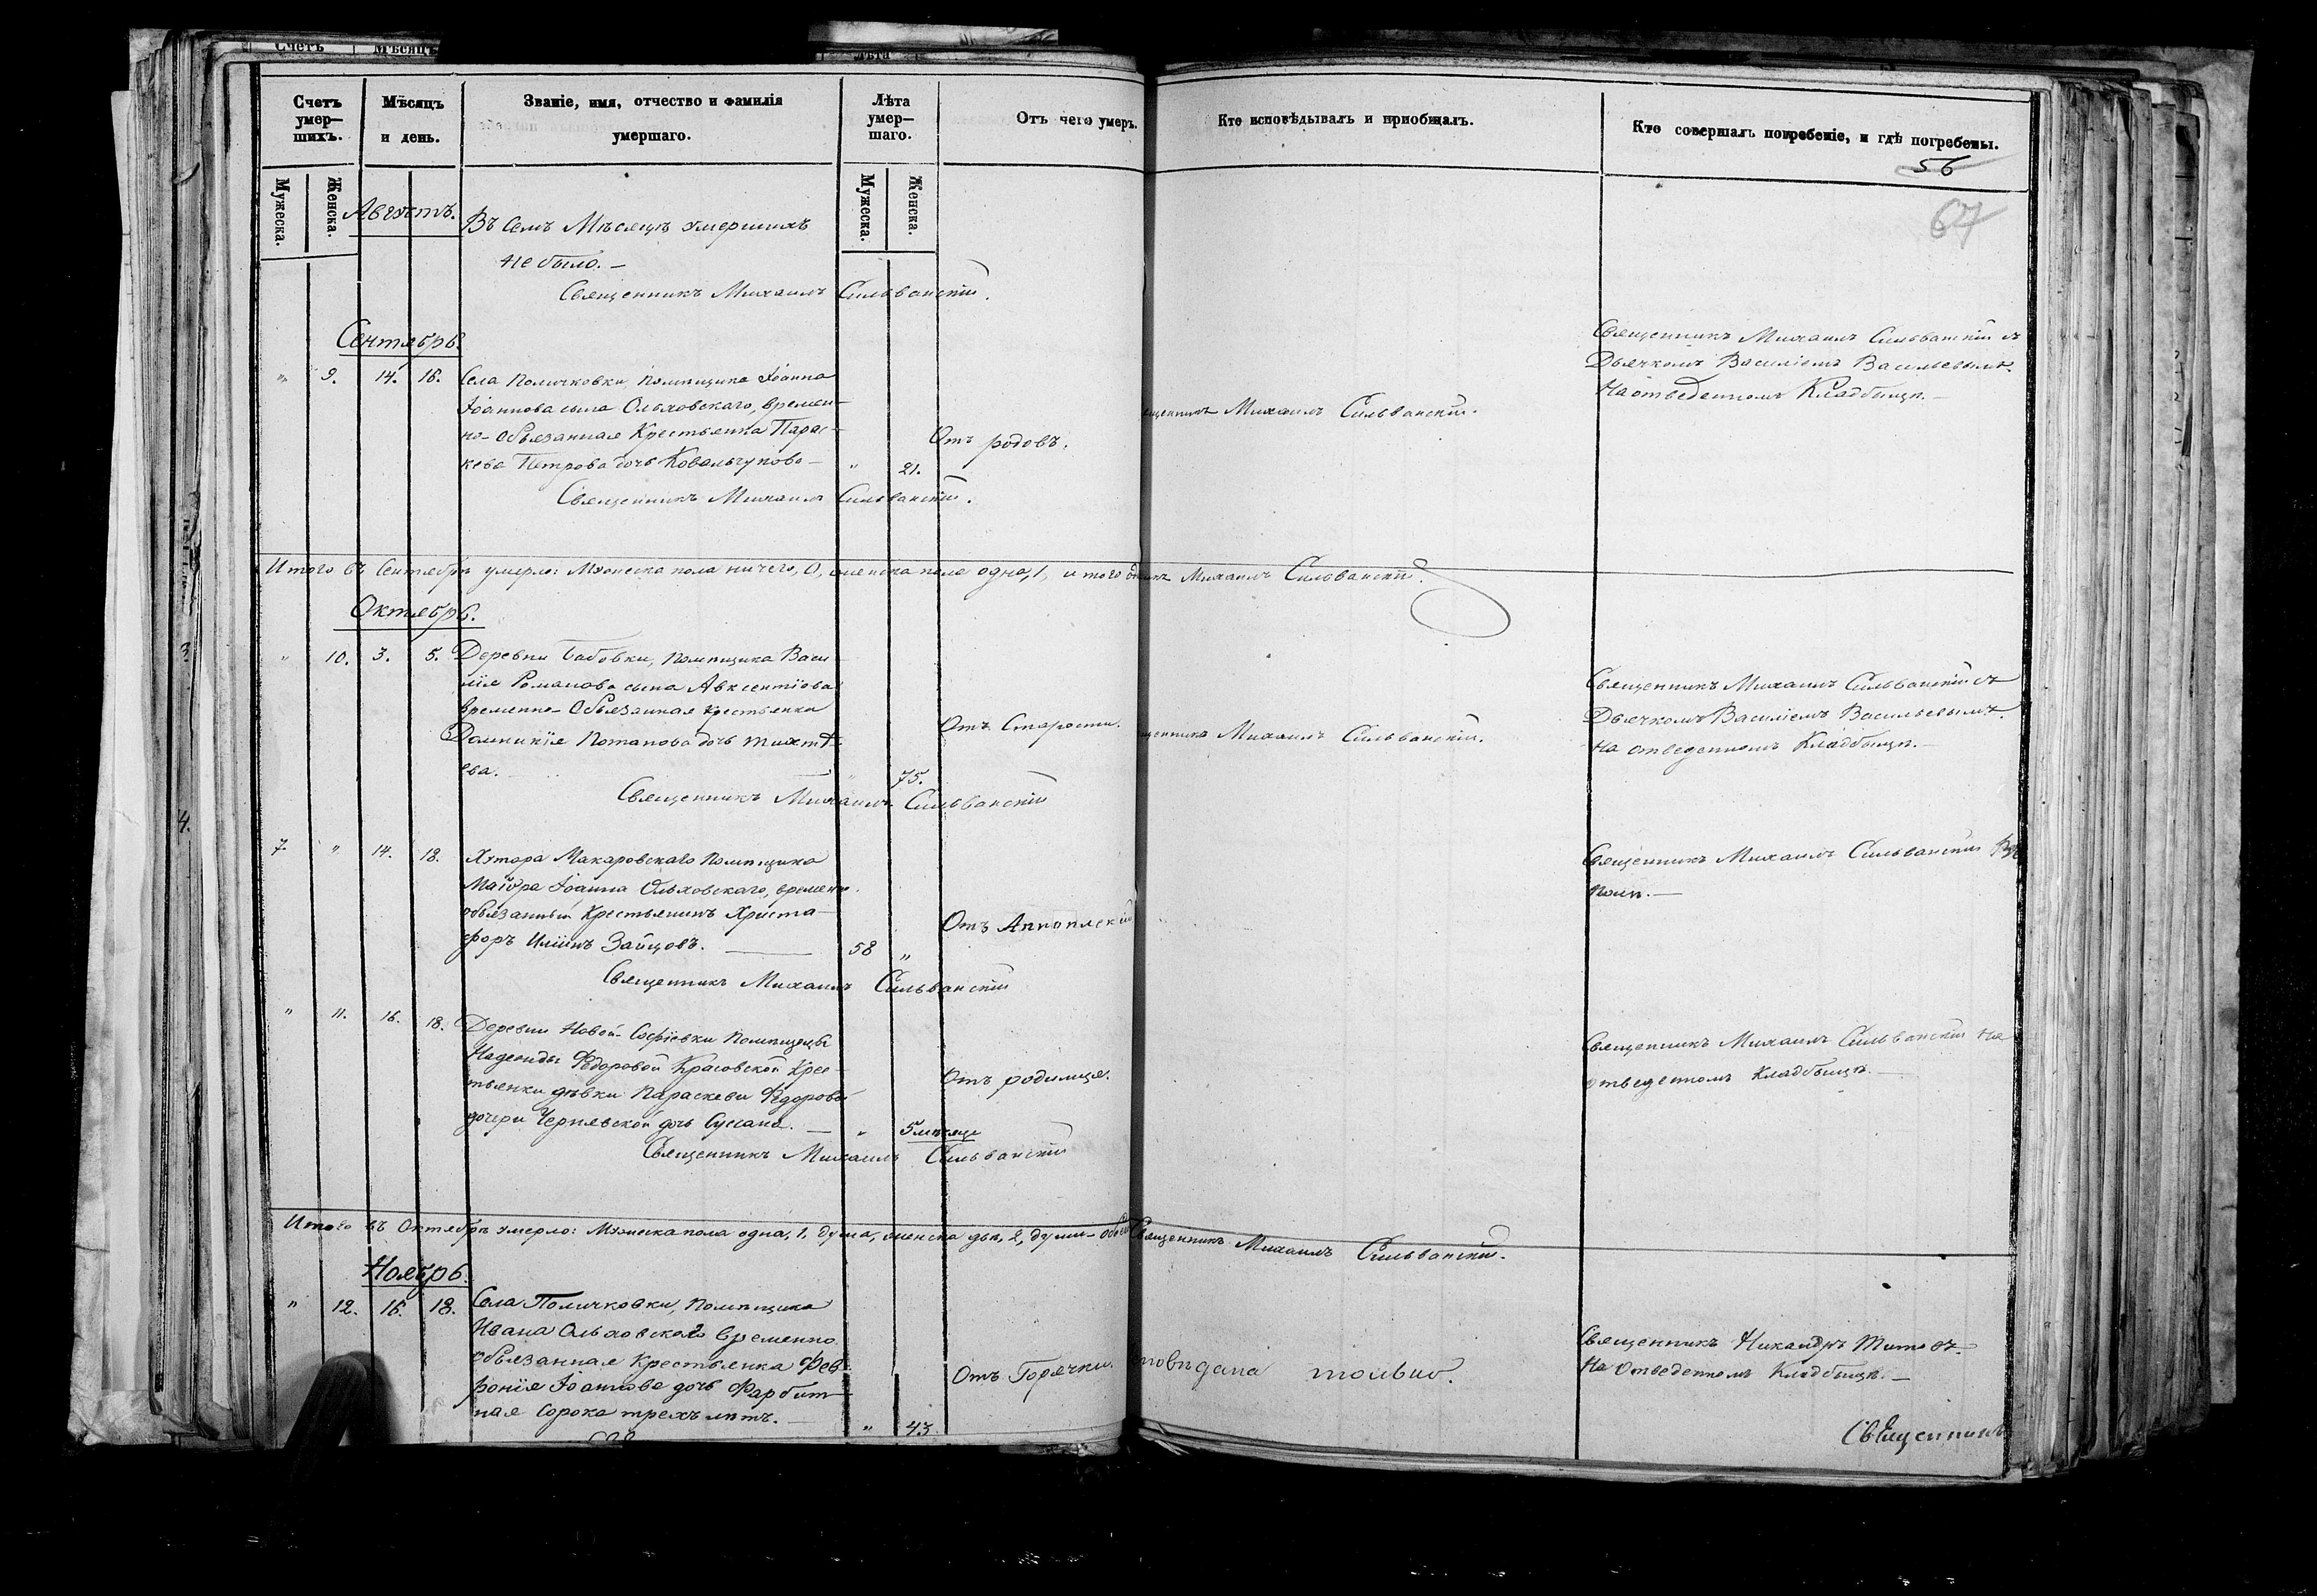 Счетъ
Мѣсяцъ
Лѣта
Счетъ умер-
шихъ.
Мѣсяцъ
и день.
Званіе, имя, отчество и фамилія
умершаго.
Лѣта
умер-
шаго.
Отъ чего умеръ.
Кто исповѣдывалъ и пріобщалъ.
Кто совершалъ погребеніе, и гдѣ погребены.
56
67
Мужеска.
Женска.
Мужеска.
Женска.
Августъ.
Въ семъ Мѣсяцѣ умершихъ
не было. –
Священникъ Михаилъ Сильванскій.
Сентябрь.
" 9. 14. 16.
Села Поличковки, помѣщика Іоанна
Іоаннова сына Ольховскаго, времен-
но-обязанная Крестьянка Парас-
кева Петрова дочь Ковальчукова –
" 21.
Отъ родовъ.
Михаилъ Сильванскій.
Священникъ Михаилъ Сильванскій съ
Дьячкомъ Василіемъ Васильевымъ.
На отведенномъ Кладбищѣ. –
Священникъ Михаилъ Сильванскій.
Итого въ Сентябрѣ умерло: Мужеска пола ничего, 0, женска пола одна, 1, итого Михаилъ Сильванскій.
Октябрь.
" 10. 3. 5.
Деревни Бабовки, помѣщика Васи-
лія Романова сына Авксентіова
временно-обязанная крестьянка
Домникія Потапова дочь
ева.
" 75.
Отъ Старости.
Михаилъ Сильванскій.
Священникъ Михаилъ Сильванскій съ
Дьячкомъ Василіемъ Васильевымъ.
На отведенномъ Кладбищѣ. –
Священникъ Михаилъ Сильванскій
7. " 14. 18.
Хутора Макаровскаго помѣщика
Маіора Іоанна Ольховскаго, временно
обязанный Крестьянинъ Христо-
форъ Иліинъ Зайцовъ. –
58 "
Отъ Аппоплексіи
Священникъ Михаилъ Сильванскій
полѣ. –
Священникъ Михаилъ Сильванскій
" 11. 16. 18.
Деревни Новой-Софіевки помѣщицы
Надежды Ѳедоровой Красовской Крес-
тьянки дѣвки Параскеви Ѳедоровой
дочери Чернявской дочь Сусана. –
" 5 мѣсяц
Отъ родимца.
Священникъ Михаилъ Сильванскій На
отведенномъ Кладбищѣ. –
Священникъ Михаилъ Сильванскій
Итого въ Октябрѣ умерло: Мужеска пола одна, 1, душа, женска двѣ, 2, души – Священникъ Михаилъ Сильванскій.
Ноябрь.
" 12. 16. 18.
Села Поличковки, помѣщика
Ивана Ольховскаго временно
обязанная крестьянка Фев-
ронія Іоаннова дочь
ная сорока трехъ лѣтъ. –
" 43.
Отъ Горячки.
Священникъ Никандръ Титовъ.
На Отведенномъ Кладбищѣ. –
Священникъ
3.
4.